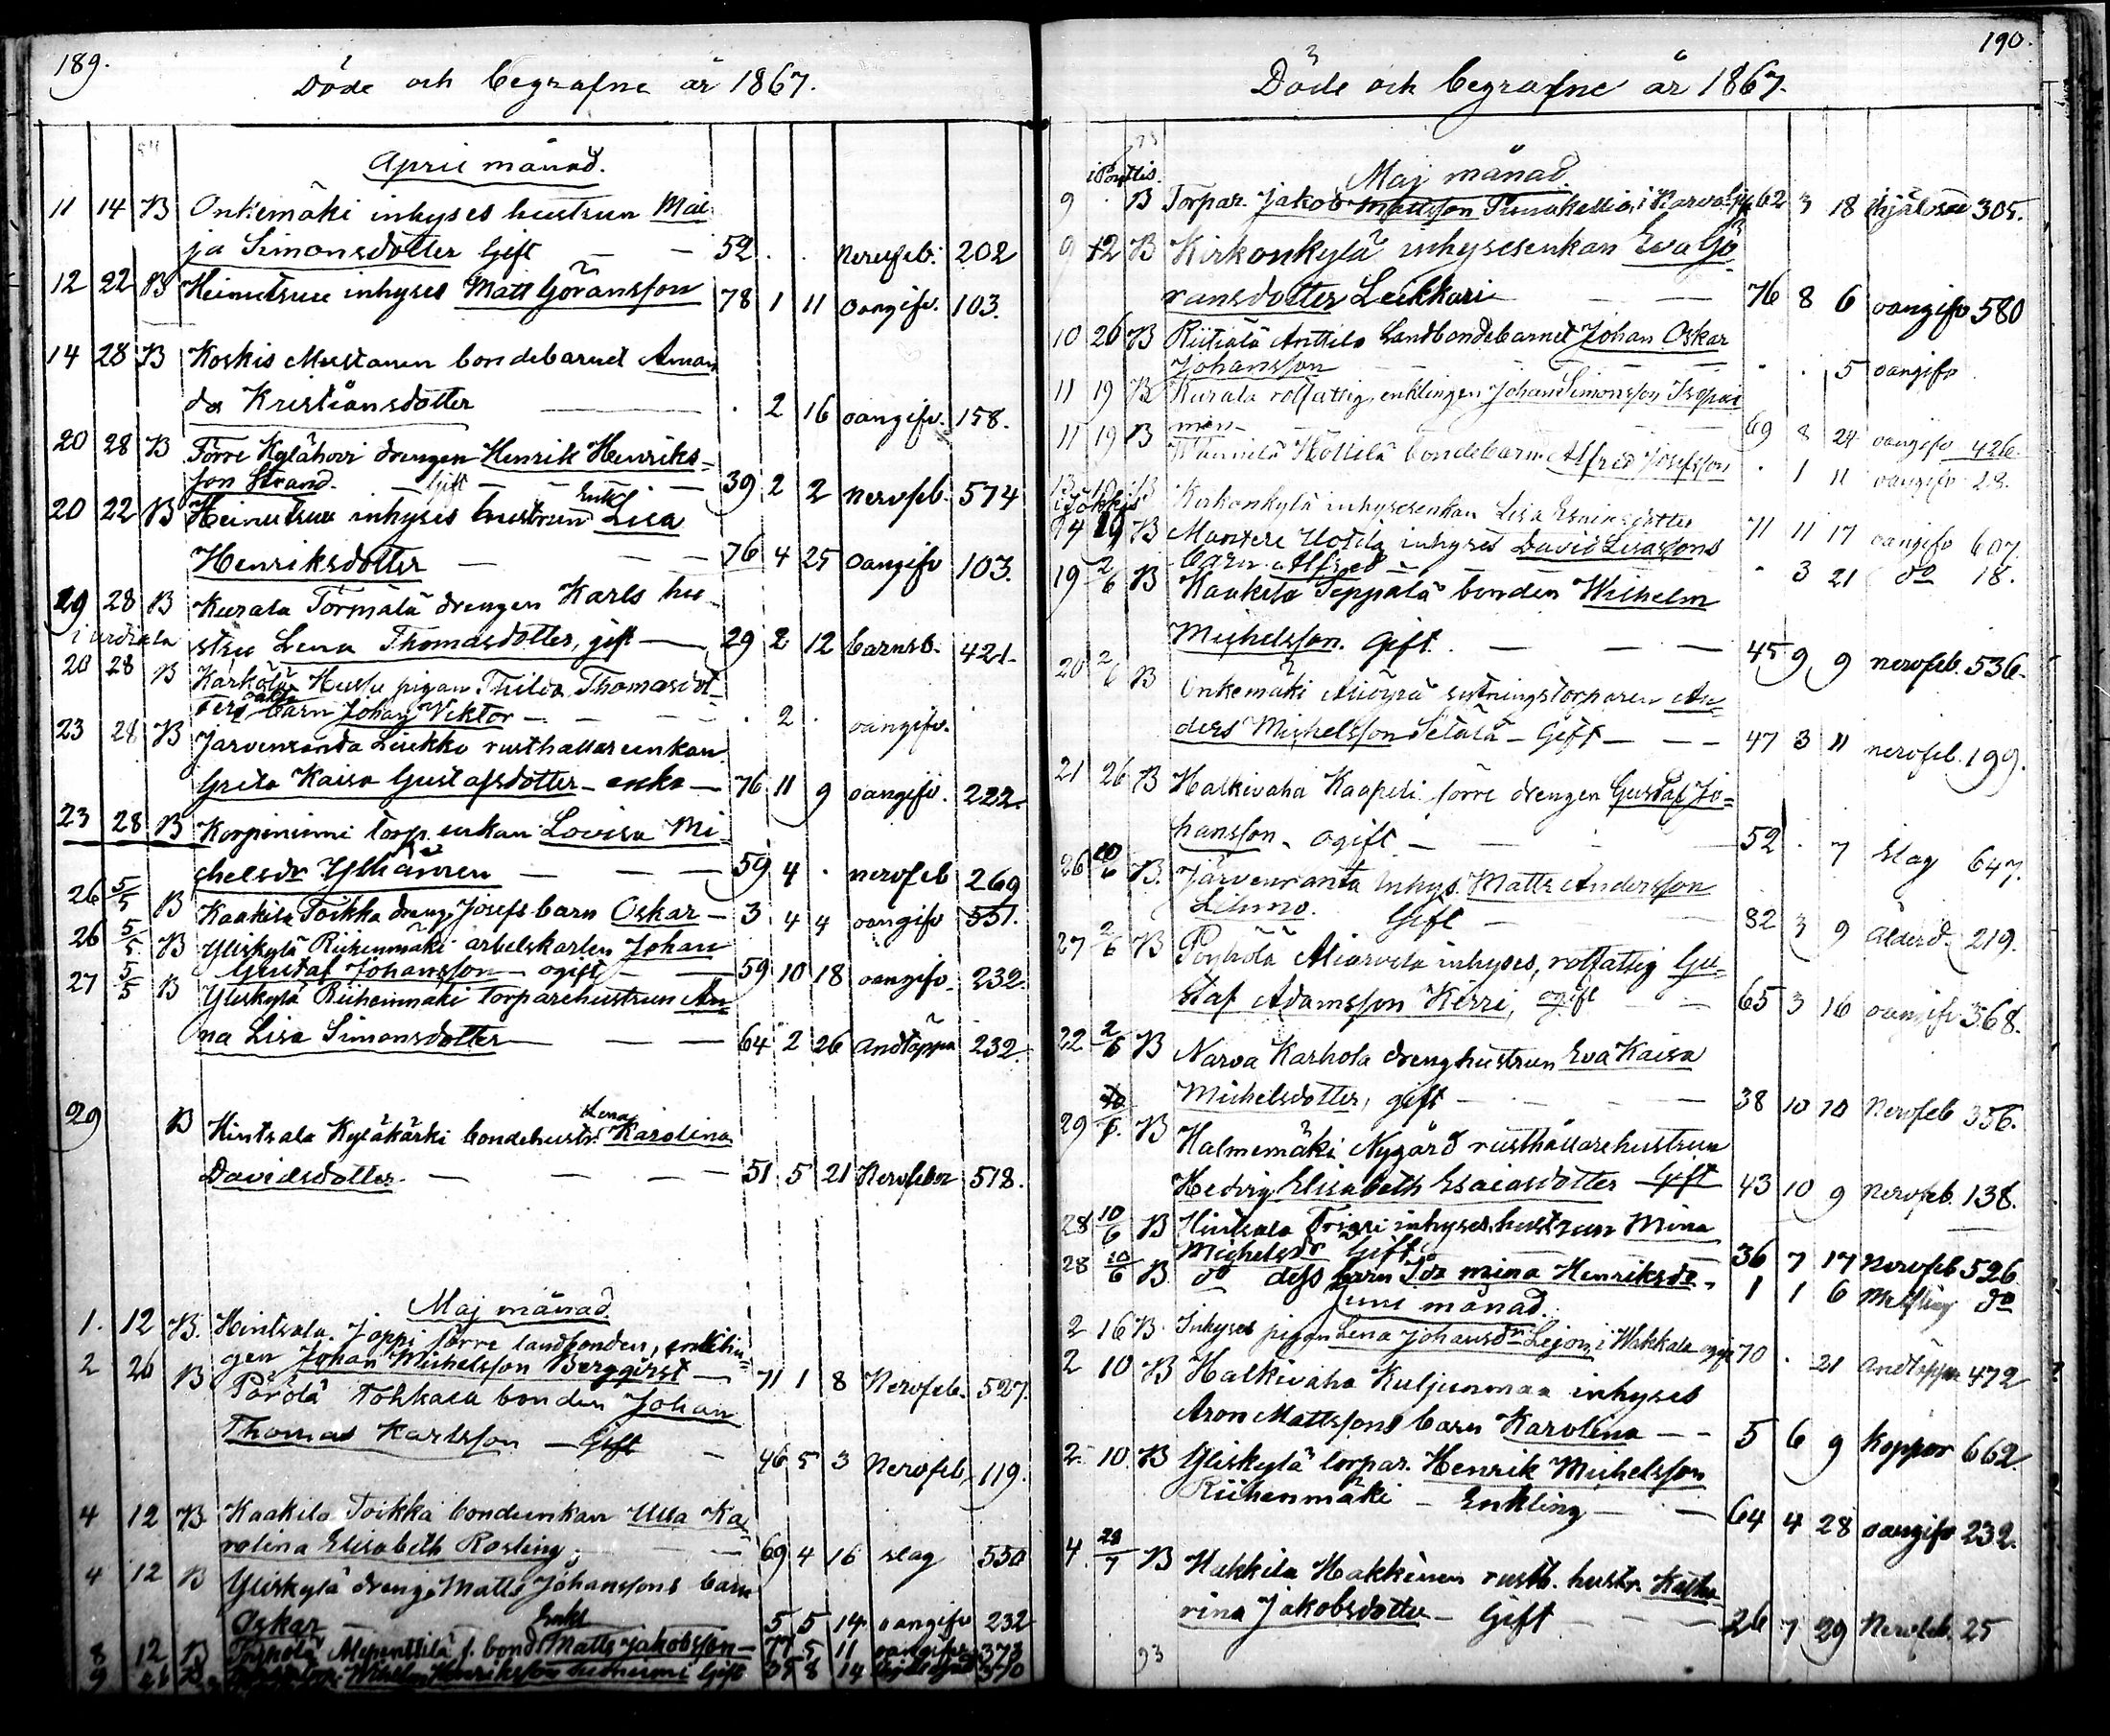 189.
Döde och begrafne år 1867.
April månad.
11 14 B Onkemäki inhyses hustrun Mai-
ja Simonsdotter Gift — 52 . . Nervfeb. 202
12 22 B Heinutsuu inhyses Matt Göransson 78 1 11 oangifv. 103.
14 28 B Koskis Mustanen bondebarnet Aman
da Kristiansdotter — . 2 16 oangifv. 158.
20 28 B Förre Kylähovi drengen Henrik Henriks-
son Strand. — Gift — 39 2 2 Nervfeb. 574
20 22 B Heinutsuu inhyses hustrun Enkl Lisa
Henriksdotter — 76 4 25 oangifv 103.
29 28 B Kurala Törmälä drengen Karls hu-
i urdiala stru Lena Thomasdotter, gift — 29 2 12 barnsb. 421.
20 28 B Kärkölä Hussu pigan Thilda Thomasdot-
ters oäkta barn Johan Viktor — . 2 . oangifv.
23 28 B Jarvensanta Liukko rusthållareenkan
Greta Kaisa Gustafsdotter — enka — 76 11 9 oangifv. 222.
23 28 B Korpiniemi torp. enkan Lovisa Mi-
chelsdr Ylhäinen — 59 4 . nervfeb 269
26 5/5 B Kaakila Toikka dreng Josefs barn Oskar — 3 4 4 oangifv 551.
26 5/5 B Yliskylä Riihenmäki arbetskarlen Johan
Gustaf Johansson — ogift — 59 10 18 oangifv. 232.
27 5/5 B Yliskylä Riihenmäki torparehustrun An-
na Lisa Simonsdotter — 64 2 26 andtäppa 232.
29 B Hintsala Kyläkärki bondehustr. Lena Karolina
Davidsdotter — 51 5 21 Nervfeber 518.
Maj månad.
1. 12 B. Hintsala Joppi förre landbonden, enklin-
gen Johan Michelsson Bergqvist — 71 1 8 Nervfeb. 527.
2 26 B Pörölä Tokkala bonden Johan
Thomas Karlsson — Gift — 46 5 3 Nervfeb. 119.
4 12 B Kaakila Toikka bondeenkan Ulla Ka-
rolina Elisabeth Rosling — 69 4 16 slag 550
4 12 B Yliskylä dreng Matts Johanssons barn
Oskar — 5 5 14 oangifv 232
8 12 B Alipenttilä f. bond. Enkl Matts Jakobsson — 77 5 11 oangifv 373
9 26 B Wilhelm Henriksson Gift 35 8 14
190.
Döde och begrafne år 1867.
Maj månad.
9 . B Torpar. Jakob Mattsson i Narva 62 3 18 305.
9 12 B Kirkonkylä inhysesenkan Eva Gö-
ransdotter Leikkari — 76 8 6 oangifv 580
10 26 B Riitiälä Anttila Landbondebarnet Johan Oskar
Johansson — . . 5 oangifv
11 19 B Kurala rotfattig, enklingen Johan Simonsson
— 69 8 24 oangifv 426.
11 19 B Wannilä Hollilä bondebarn Alfred Josefsson . 1 11 oangifv 28.
Kirkonkylä inhysesenkan Lisa — 71 11 17 oangifv 607.
14 19 B Mantere Uotila inhyses David Lisassons
barn Alfred — . 3 21 do 18.
19 2/6 B Kaakila Seppälä bonden Wilhelm
Michelsson. Gift. — 45 9 9 nervfeb. 536.
20 2/6 B Onkemäki sytningstorparen An-
ders Michelsson Setälä — Gift — 47 3 11 nervfeb. 199.
21 26 B Halkivaha Kaapeli förre drengen Gustaf Jo-
hansson — ogift — 52 . 7 slag 647.
26 10/6 B. Järvenranta inhys. Matts Andersson
Lehmo. Gift — 82 3 9 ålderd. 219.
27 2/6 B Pöyhölä inhyses, rotfattig Gu-
staf Adamsson Kerri, ogift — 65 3 16 oangifv 368.
22 2/6 B Narva Karhola dreng hustrun Eva Kaisa
Michelsdotter, gift — 38 10 10 Nervfeb 356.
29 10/6. B Halmemäki Nygård rusthållarehustrun
Hedvig Elisabeth Esaiasdotter Gift 43 10 9 Nervfeb. 138.
28 10/6 B Hintsala inhyses hustrun Mina
Michelsdr Gift — 36 7 17 Nervfeb 526
28 10/6 B. do dess barn Ida Mina Henriksdr. 1 1 6 do
Juni månad.
2 16 B. Inhyses pigan Lena Johansdr Lejon i Wakkala ogift 70 . 21 andtäppa 472
2 10 B Halkivaha Kuljunmaa inhyses
Aron Mattssons barn Karolina — 5 6 9 koppor 662.
2. 10. B Yliskylä torpar. Henrik Michelsson
Riihenmäki — Enkling — 64 4 28 oangifv 232.
4. 28/7 B Hakkila Hakkinen rusth. hustr. Katha
rina Jakobsdotter — Gift — 26 7 29 Nervfeb. 25
93